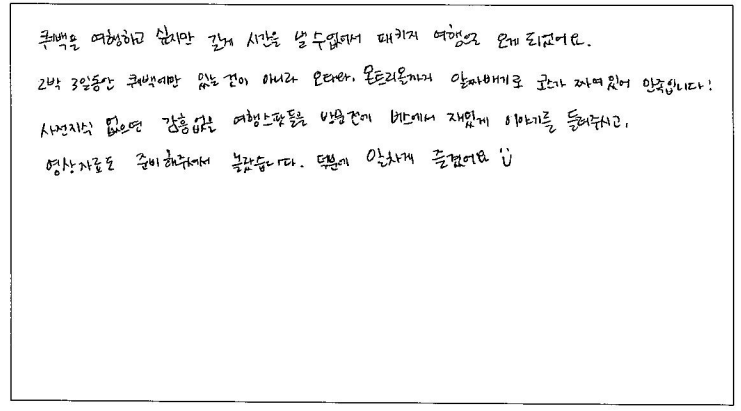 퀘백을 여행하고 싶지만 길게 시간을 낼 수 없어서 패키지 여행으로 오게 되었어요.
2박 3일동안 퀘백에만 있는 것이 아니라 오타와, 몬트리올까지 알짜배기로 코스가 짜여있어 만족입니다!
사전지식 없으면 감흥없을 여행스팟들을 방문전에 버스에서 재밌게 이야기를 들려주시고,
영상자료도 준비해주셔서 놀랐습니다. 덕분에 알차게 즐겼어요 :)